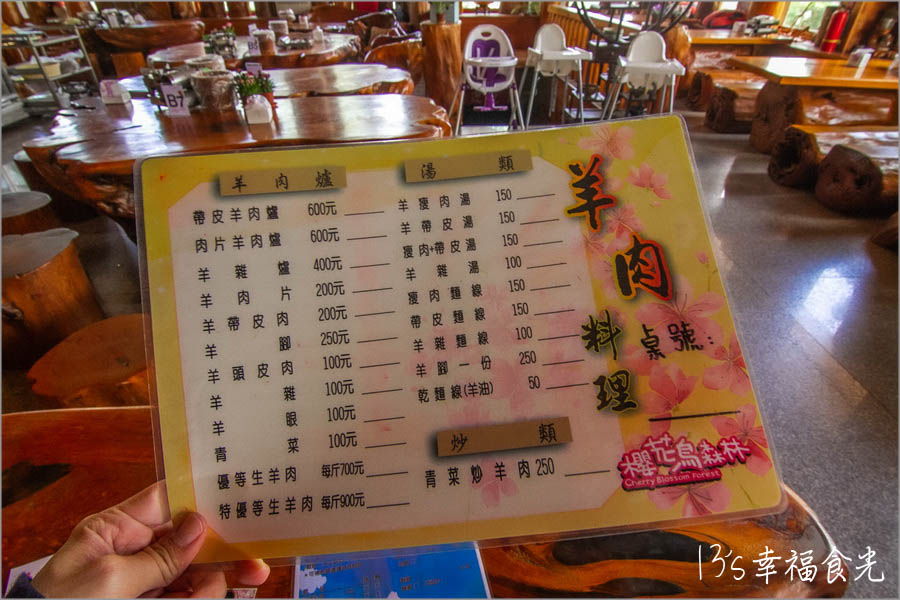 羊肉爐
帶皮羊肉爐 600元
肉片羊肉爐 600元
羊雜爐 400元
羊肉片 200元
羊帶皮肉 200元
羊腳 250元
羊頭皮肉 100元
羊雜 100元
羊眼 100元
青菜 100元
優等生羊肉 每斤700元
特優等生羊肉 每斤900元
湯類
羊瘦肉湯 150
羊帶皮湯 150
瘦肉+帶皮湯 150
羊雜湯 100
瘦肉麵線 150
帶皮麵線 150
羊雜麵線 100
羊腳一份 250
乾麵線(羊油) 50
炒類
青菜炒羊肉 250
羊肉料理
桌號:
櫻花鳥森林
Cherry Blossom Forest
B7
13's幸福食光